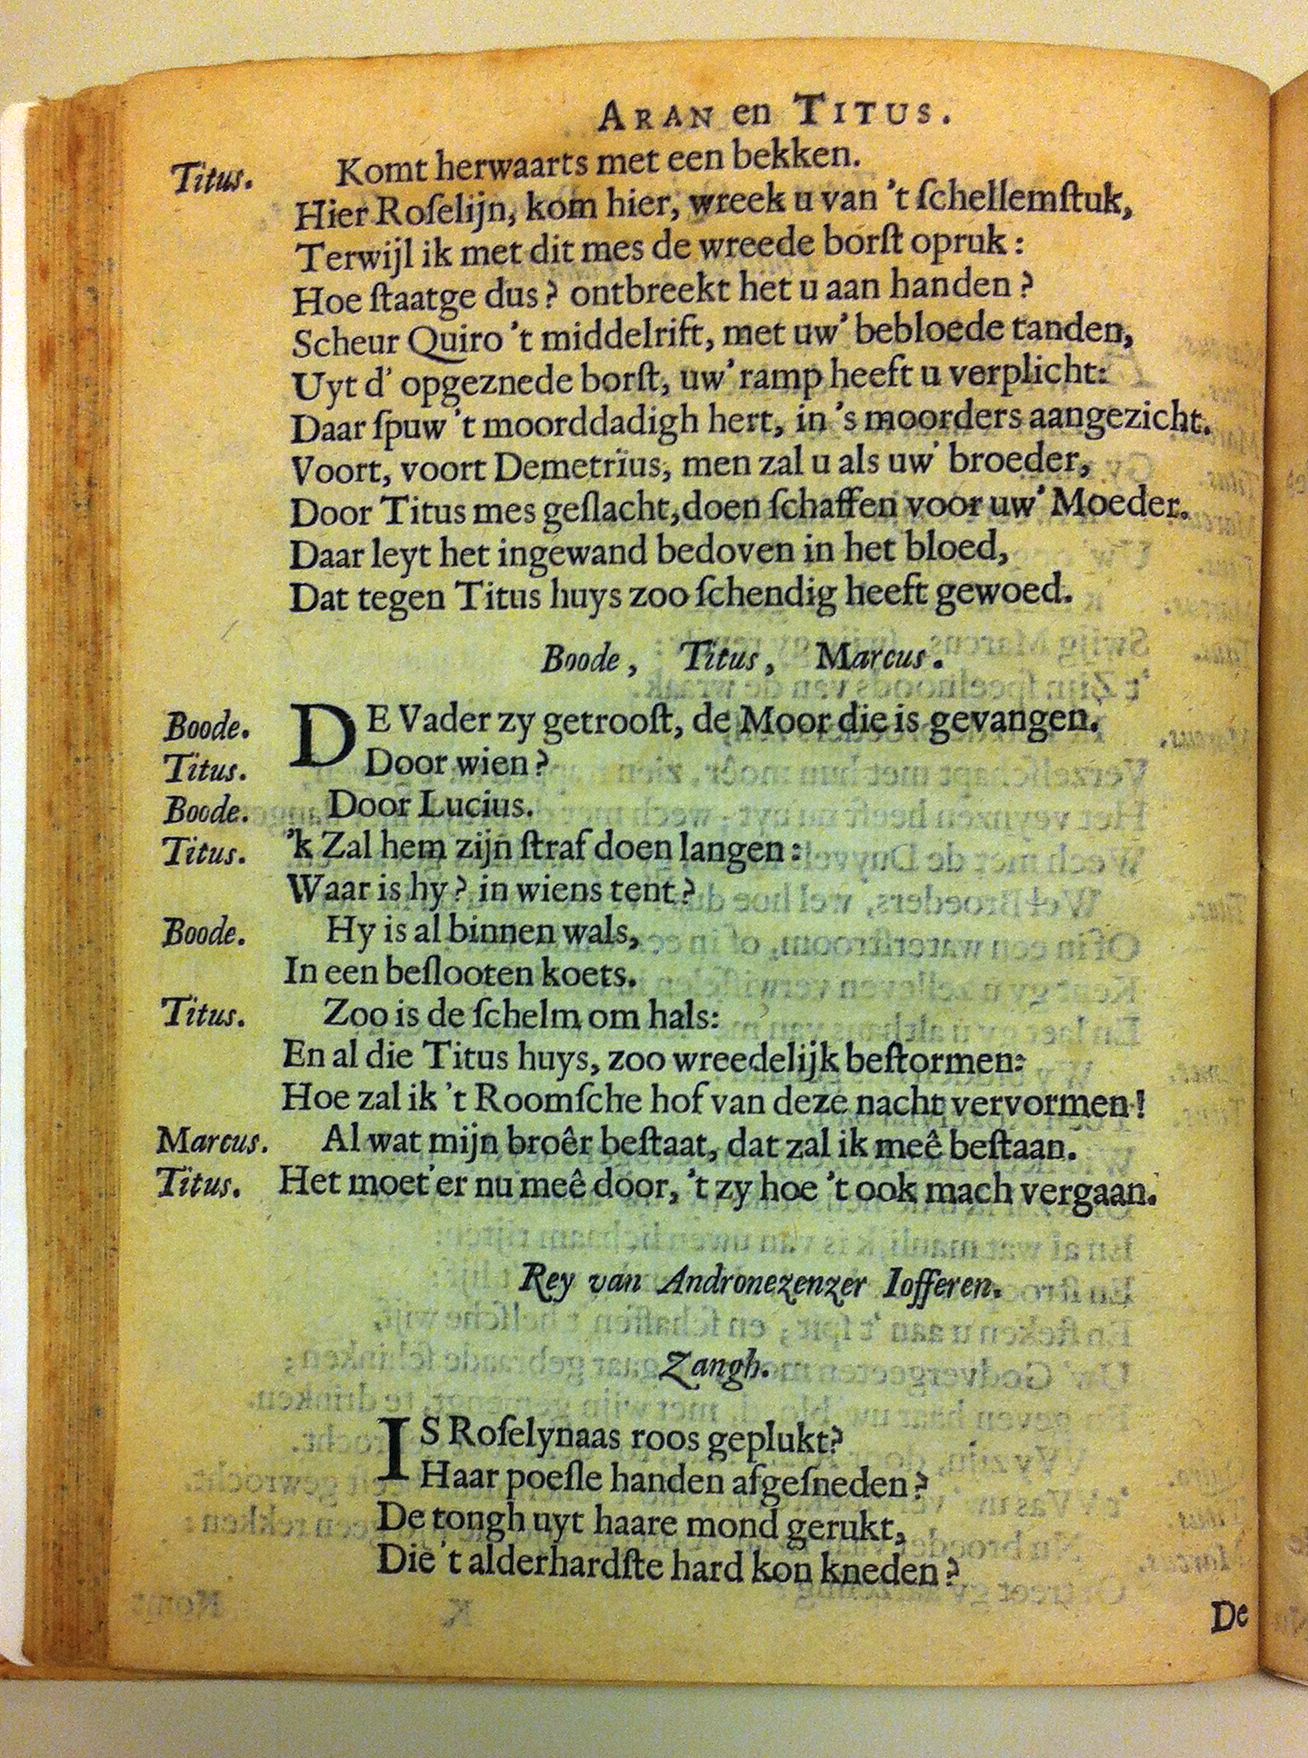 ARAN en TITUS.
Titus. Komt herwaarts met een bekken.
Hier Roſelijn, kom hier, wreek u van 't ſchellemſtuk,
Terwijl ik met dit mes de wreede borſt opruk:
Hoe ſtaatge dus? ontbreekt het u aan handen?
Scheur Quiro 't middelrift, met uw' bebloede tanden,
Uyt d' opgeznede borſt, uw' ramp heeft u verplicht:
Daar ſpuw 't moorddadigh hert, in 's moorders aangezicht.
Voort, voort Demetrius, men zal u als uw' broeder,
Door Titus mes geſlacht, doen ſchaffen voor uw' Moeder.
Daar leyt het ingewand bedoven in het bloed,
Dat tegen Titus huys zoo ſchendig heeft gewoed.
Boode, Titus, Marcus.
Boode. DE Vader zy getrooſt, de Moor die is gevangen.
Titus. Door wien?
Boode. Door Lucius.
Titus. 'k Zal hem zijn ſtraf doen langen:
Waar is hy? in wiens tent?
Boode. Hy is al binnen wals,
In een beſlooten koets.
Titus. Zoo is de ſchelm om hals:
En al die Titus huys, zoo wreedelijk beſtormen:
Hoe zal ik 't Roomſche hof van deze nacht vervormen!
Marcus. Al wat mijn broêr beſtaat, dat zal ik meê beſtaan.
Titus. Het moet'er nu meê door, 't zy hoe 't ook mach vergaan.
Rey van Andronezenzer Iofferen.
Zangh.
IS Roſelynaas roos geplukt?
Haar poeſle handen afgeſneden?
De tongh uyt haare mond gerukt,
Die 't alderhardſte hard kon kneden?
De